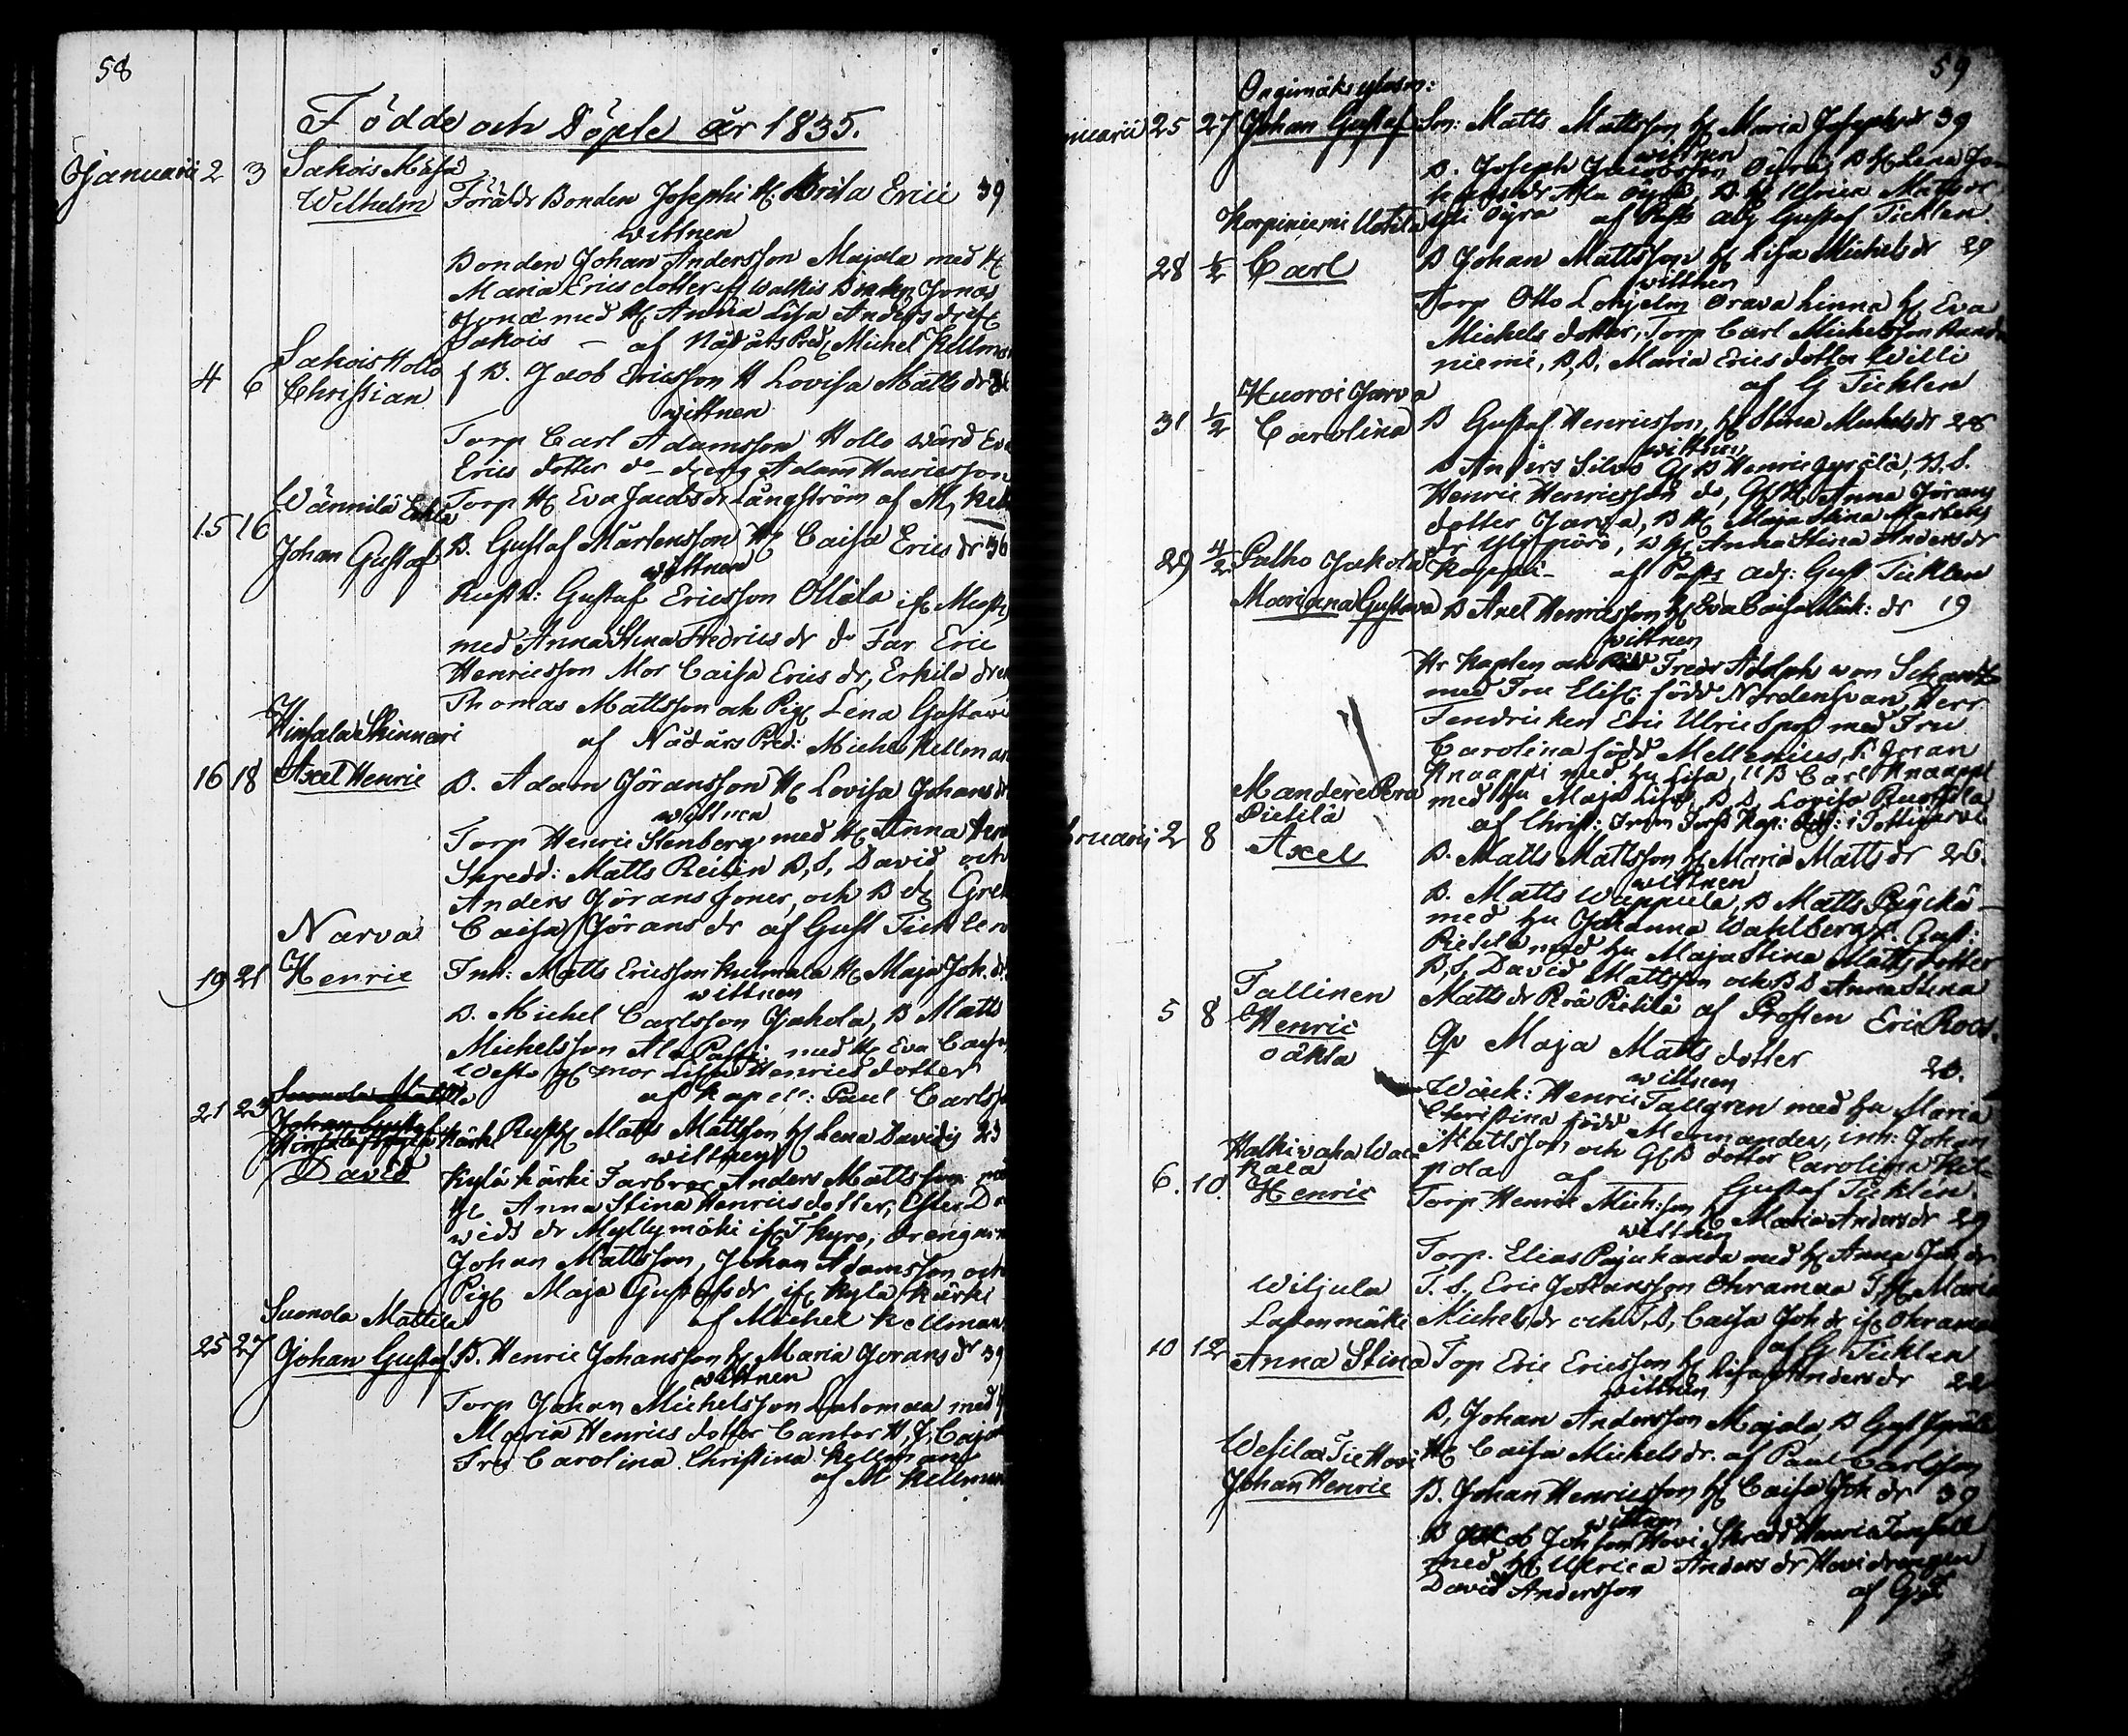 58
Födde och Döpte år 1835.
Januarii 2 3 Sakois Mäsä
Wilhelm Föräldr Bonden Josephi H. Brita Erici 39
wittnen
Bonden Johan Andersson Majala med H.
Maria Ericsdotter Walkis Bonden Jonas
med H. Anna Lisa Anders dr
Sakois – af Nådårs Pred. Michel Kellman
4 6 Sakois Hollo
Christian B. Jacob Ericsson H Lovisa Matts dr
wittnen
Torp Carl Adamsson Hollo wärd Eva
Erics dotter do dreng Adam Henricsson
Torp H. Eva Jacobs dr Långström af M,
15 16 Wännilä
Johan Gustaf B. Gustaf Mårtensson H. Caisa Erics dr 36
wittnen
Rusth: Gustaf Ericsson Ollila
med Anna Stina Hedrics dr do Far Eric
Henricsson Mor Caisa Erics dr, Erkila
Thomas Mattsson och Pig. Lena Gustavi
af Nådårs Pred: Michel Kellman
Hinsala Skinnari
16 18 Axel Henric B. Adam Göransson H. Lovisa Johans dr
wittnen
Torp Henric Stenberg med H. Anna
Skredd: Matts Reilin B, S, David och
Anders Görans Soner, och B d. Greta
Caisa Görans dr af Gust Ticklen
Narva
19 21 Henric Inh: Matts Ericsson Kulmala H. Maja Joh. dr
wittnen
B. Michel Carlsson Jakola, B Matts
Michelsson Ala Passi med H. Eva Caisa
mor Lisa Henrics dotter
af Kapell: Paul Carlsson
21 23 Suonola Mattila
Johan Gustaf
Kärki Rusth. Matts Mattsson H. Lena Davids 23
wittnen
David Kylä kärki Farbror Anders Mattsson
H. Anna Stina Henrics dotter, Ester Da
vids dr Myllymäki if. T kyro, drengarne
Johan Mattsson, Johan Adamsson och
Pig. Maja Gustafs dr if. Kylä Kärki
af Michel Kellman
Suonola Mattila
25 27 Johan Gustaf B. Henric Johansson H. Maria Görans dr 39
wittnen
Torp Johan Michelsson Lalomaa med
Maria Henrics dotter Cantor H, J, Caj
Fru Carolina Christina Kellman
af M Kellman
59
25 27 Johan Gustaf Sn: Matts Mattsson H. Maria Josephs dr 39
wittnen
B. Joseph Jacobsson Öyrä, B H. Lena Jo
sephs dr Ala Öyrä, B H. Ulrica Matts dr
Yli Öyra af Past: adj Gustaf Ticklen
Korpiniemi Uotila
28 1/2 Carl B Johan Mattsson H. Lisa Michels dr 29
wittnen
Torp Otto Lohjelm Orava Linna H. Eva
Michels dotter, Torp Carl Michelsson
niemi, B, D, Maria Erics dotter Willi
af G Ticklen
Huoroi Jarva
31 1/2 Carolina B Gustaf Henricsson, H. Stina Michels dr 28
wittnen
B Anders Silvo B Henric Jyrälä, B. S.
Henric Henricsson do, Anna Görans
dotter Jarva, B H. Maja Stina Mårtens
dr H. Anna Stina Anders dr
29 4/2 Palho Jakola
af Past: adj: Gust Ticklen
Mariana Gustava B Axel Henricsson H. Eva Caisa Mich: dr 19
wittnen
Hr Kapten och Fredr Adolph von Schantz
med Fru Elis: född Nordensvan, Herr
Fendricken Eric Ulric Spof med Fru
Carolina född Mellenius, Göran
Knaappi med hu Lisa, B Carl Knaappi
med hu Maja Lisa, B, D, Lovisa
Mandere Perä
Pietilä
2 8 Axel B. Matts Mattsson H. Maria Matts dr 26.
wittnen
B. Matts Wappula, B Matts
med hu Johanna Wahlberg, Gust:
Pietilä med hu Maja Stina Matts dotter
B, S, David Mattsson och B D Anna Stina
Matts dr Perä Pietilä af Prosten Eric Roos.
Tallinen
5 8 Henric
oäkta
Maja Matts dotter 20.
wittnen
Henric Tallgren med hu Maria
Christina född Mennander, inh: Johan
Mattsson och dotter Carolina Kil
pola af Gustaf Ticklén
6. 10. Henric Torp Henric Mich:son H. Maria Anders dr 29
wittnen
Torp. Elias Pajukanda med H. Anna Joh dr
T. S, Eric Johansson Ohramaa T, H. Maria
Michels dr och T, D, Caisa Joh dr if. Ohramaa
af G Ticklén
Wiljula
Lassenmäki
10 12 Anna Stina Torp Eric Ericsson H. Lisa Anders dr 22
wittnen
B, Johan Andersson Majala, B Gust
H. Caisa Michels dr. af Paul Carlsson
Wesilax Tie Hovi
Johan Henric B. Johan Henricsson H. Caisa Joh dr 39
wittnen
B Jacob Johsson Hovi Skredd Henric
med H. Ulrica Anders dr Hovi drengen
David Andersson af G T